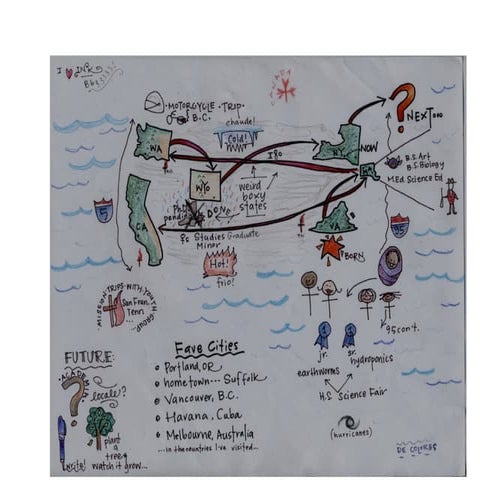 I ♥ INKS
MOTORCYCLE TRIP
B.C.
chaude!
Cold!
NEXT...
WA
I80
NY
NOW
B.S. Art
B.S. Biology
M.Ed Science Ed
WYO
weird
boxy
states
PhD
pending
DONE
5
CA
VA
95
♀s Studies Graduate
Minor
BORN
Hot!
frio!
MISSION TRIPS WITH YOUTH GROUP...
San Fran.
Tenn
...
95 cont.
jr.
sr.
hydroponics
earthworms
H.S. Science Fair
(hurricanes)
FUTURE:
ACADEMIA
?
locale?
plant
a
tree
write!
watch it grow...
Fave Cities
Portland, OR
hometown... Suffolk
Vancouver, B.C.
Havana, Cuba
Melbourne, Australia
...in the countries I've visited...
DE COLORES